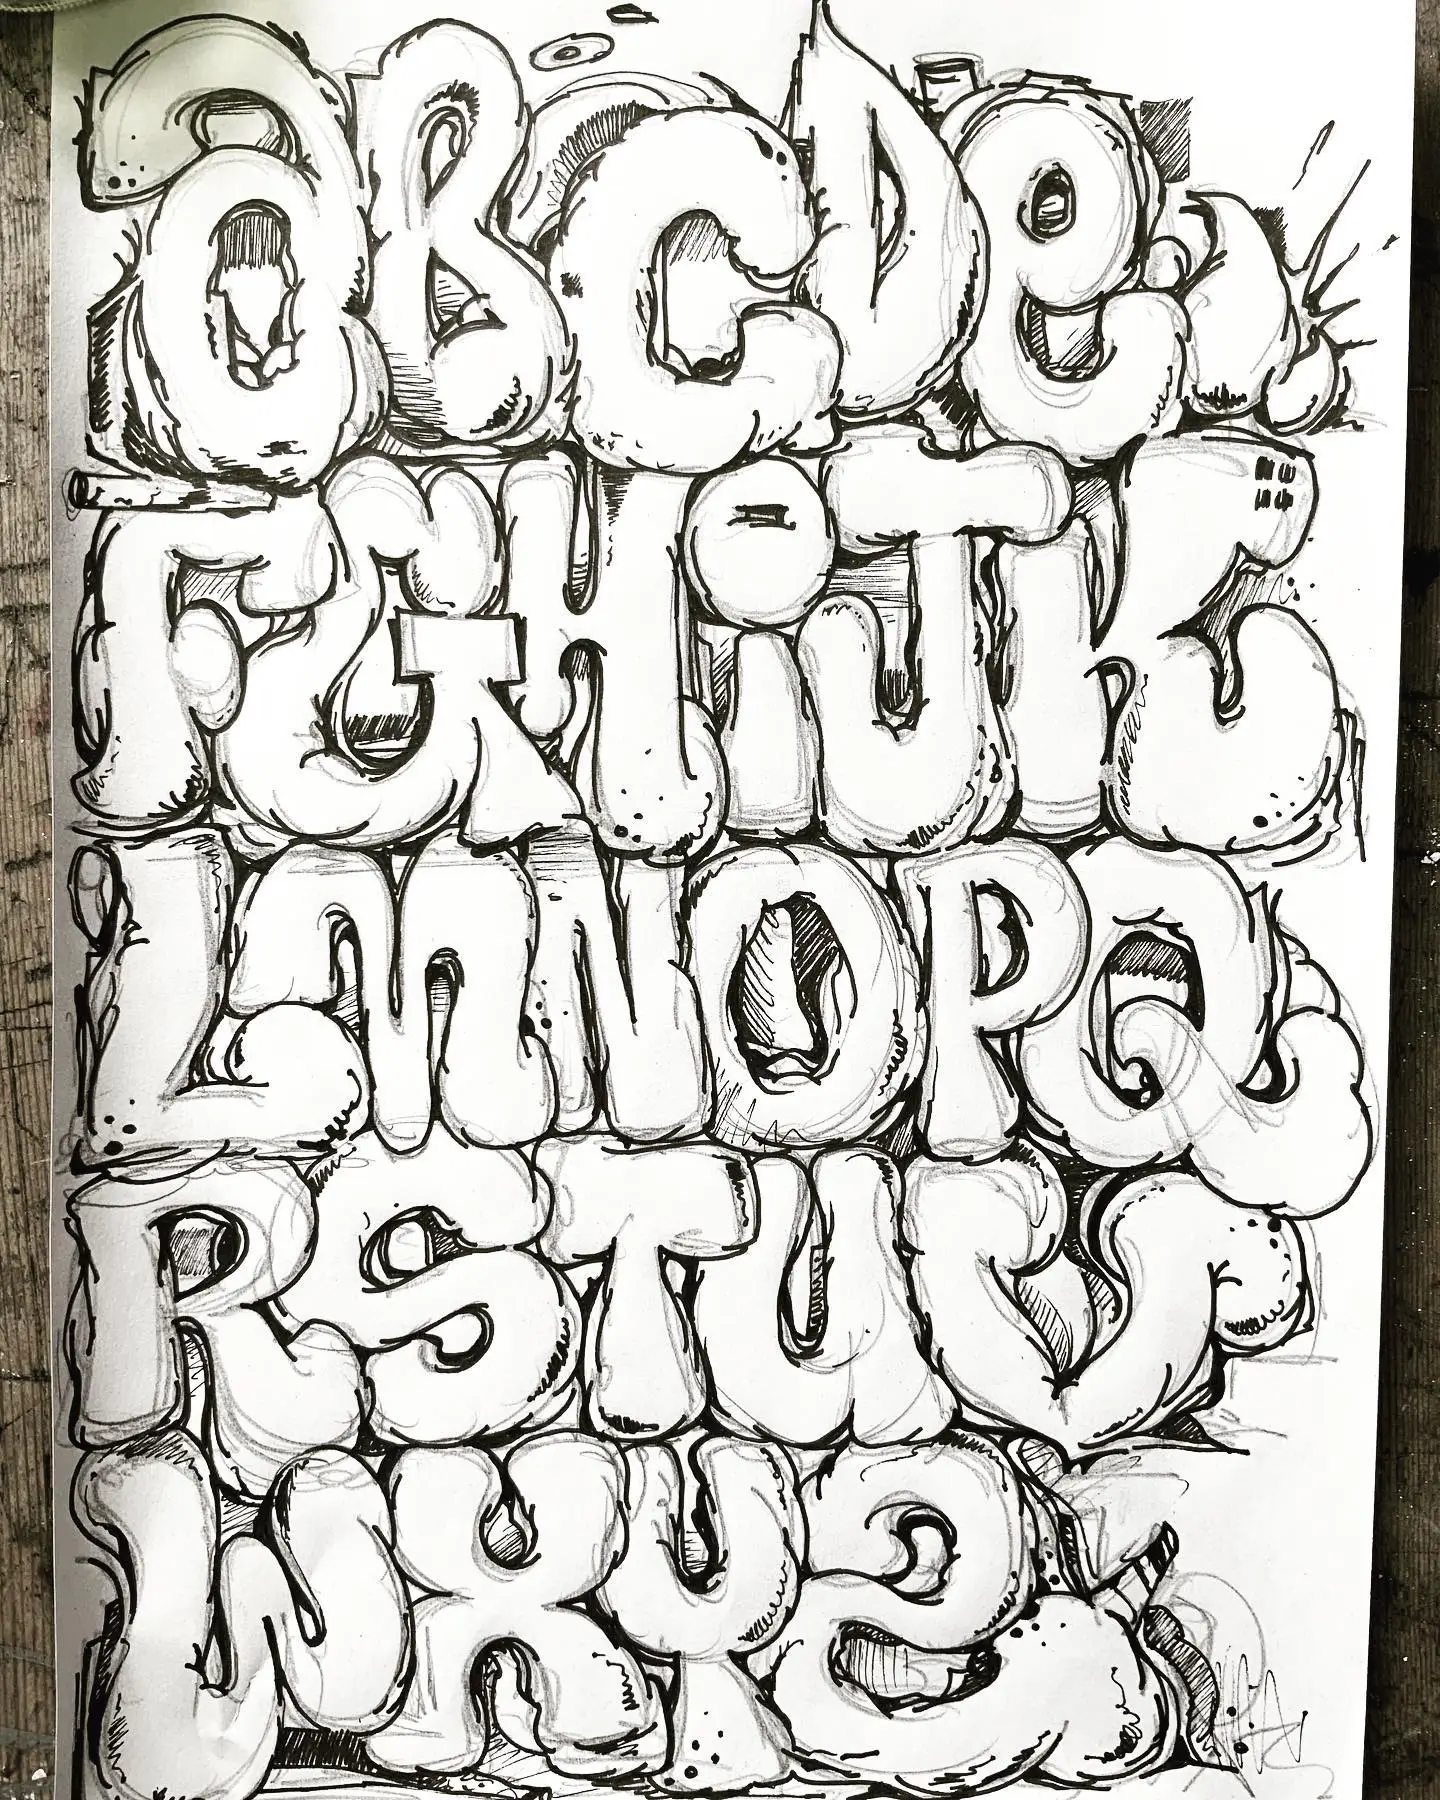 aBCDe
FGHiJK
LmNOPQ
RSTUV
WXYZ